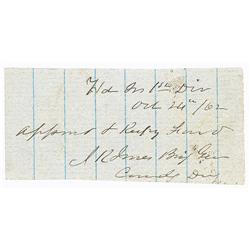 Hd Qrs 1st Div
Oct 24th /62
Approved & Resfy Forwd
J R Jones Brig Gen
Comdg Div